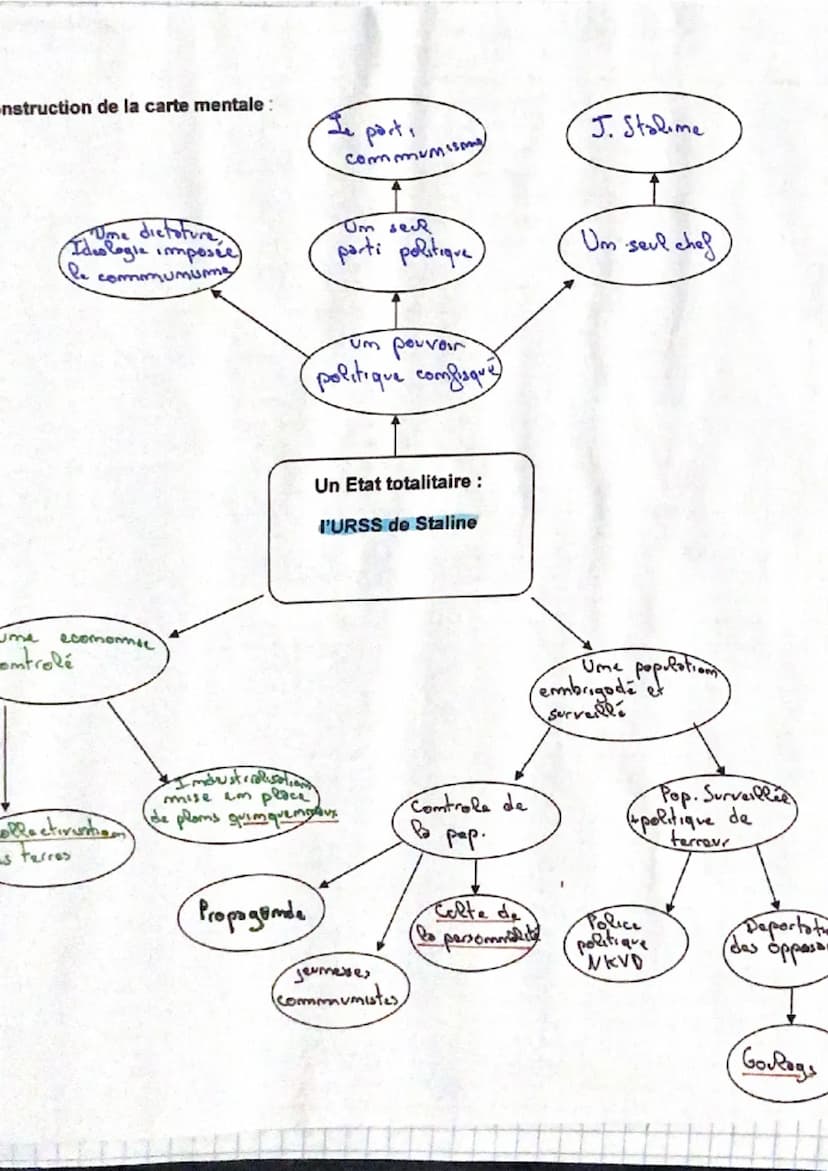 nstruction de la carte mentale :
Le parti
communisme
J. Staline
Une dictature
Ideologie imposée
le communisme
Um seul
parti politique
Um seul chef
um pouvoir
politique confisqué
Un Etat totalitaire :
l'URSS de Staline
ume economie
ontrolé
Ume population
embrigadé et
surveillé
Industrialisation
mise em place
de plans quinquennaux
ollectivisation
s terres
Controle de
la pop.
Pop. Surveillée
+ politique de
terreur
Propagande
Culte de
la personnalité
jeunesses
communistes
Police
politique
NKVD
Deportati
des opposa
Goulags